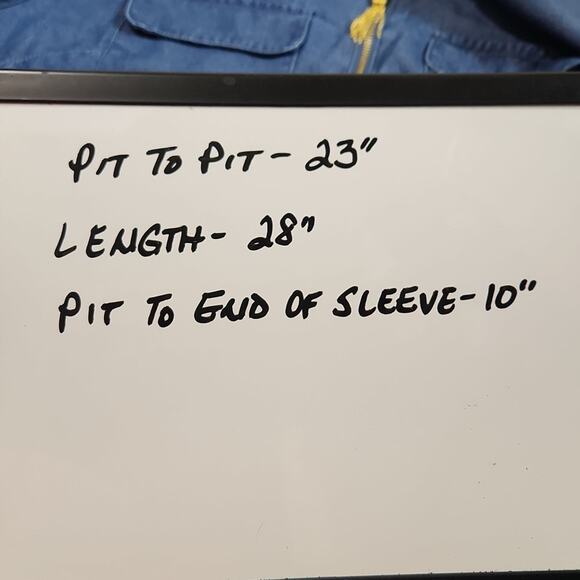 PIT TO PIT - 23"
LENGTH - 28"
PIT TO END OF SLEEVE - 10"